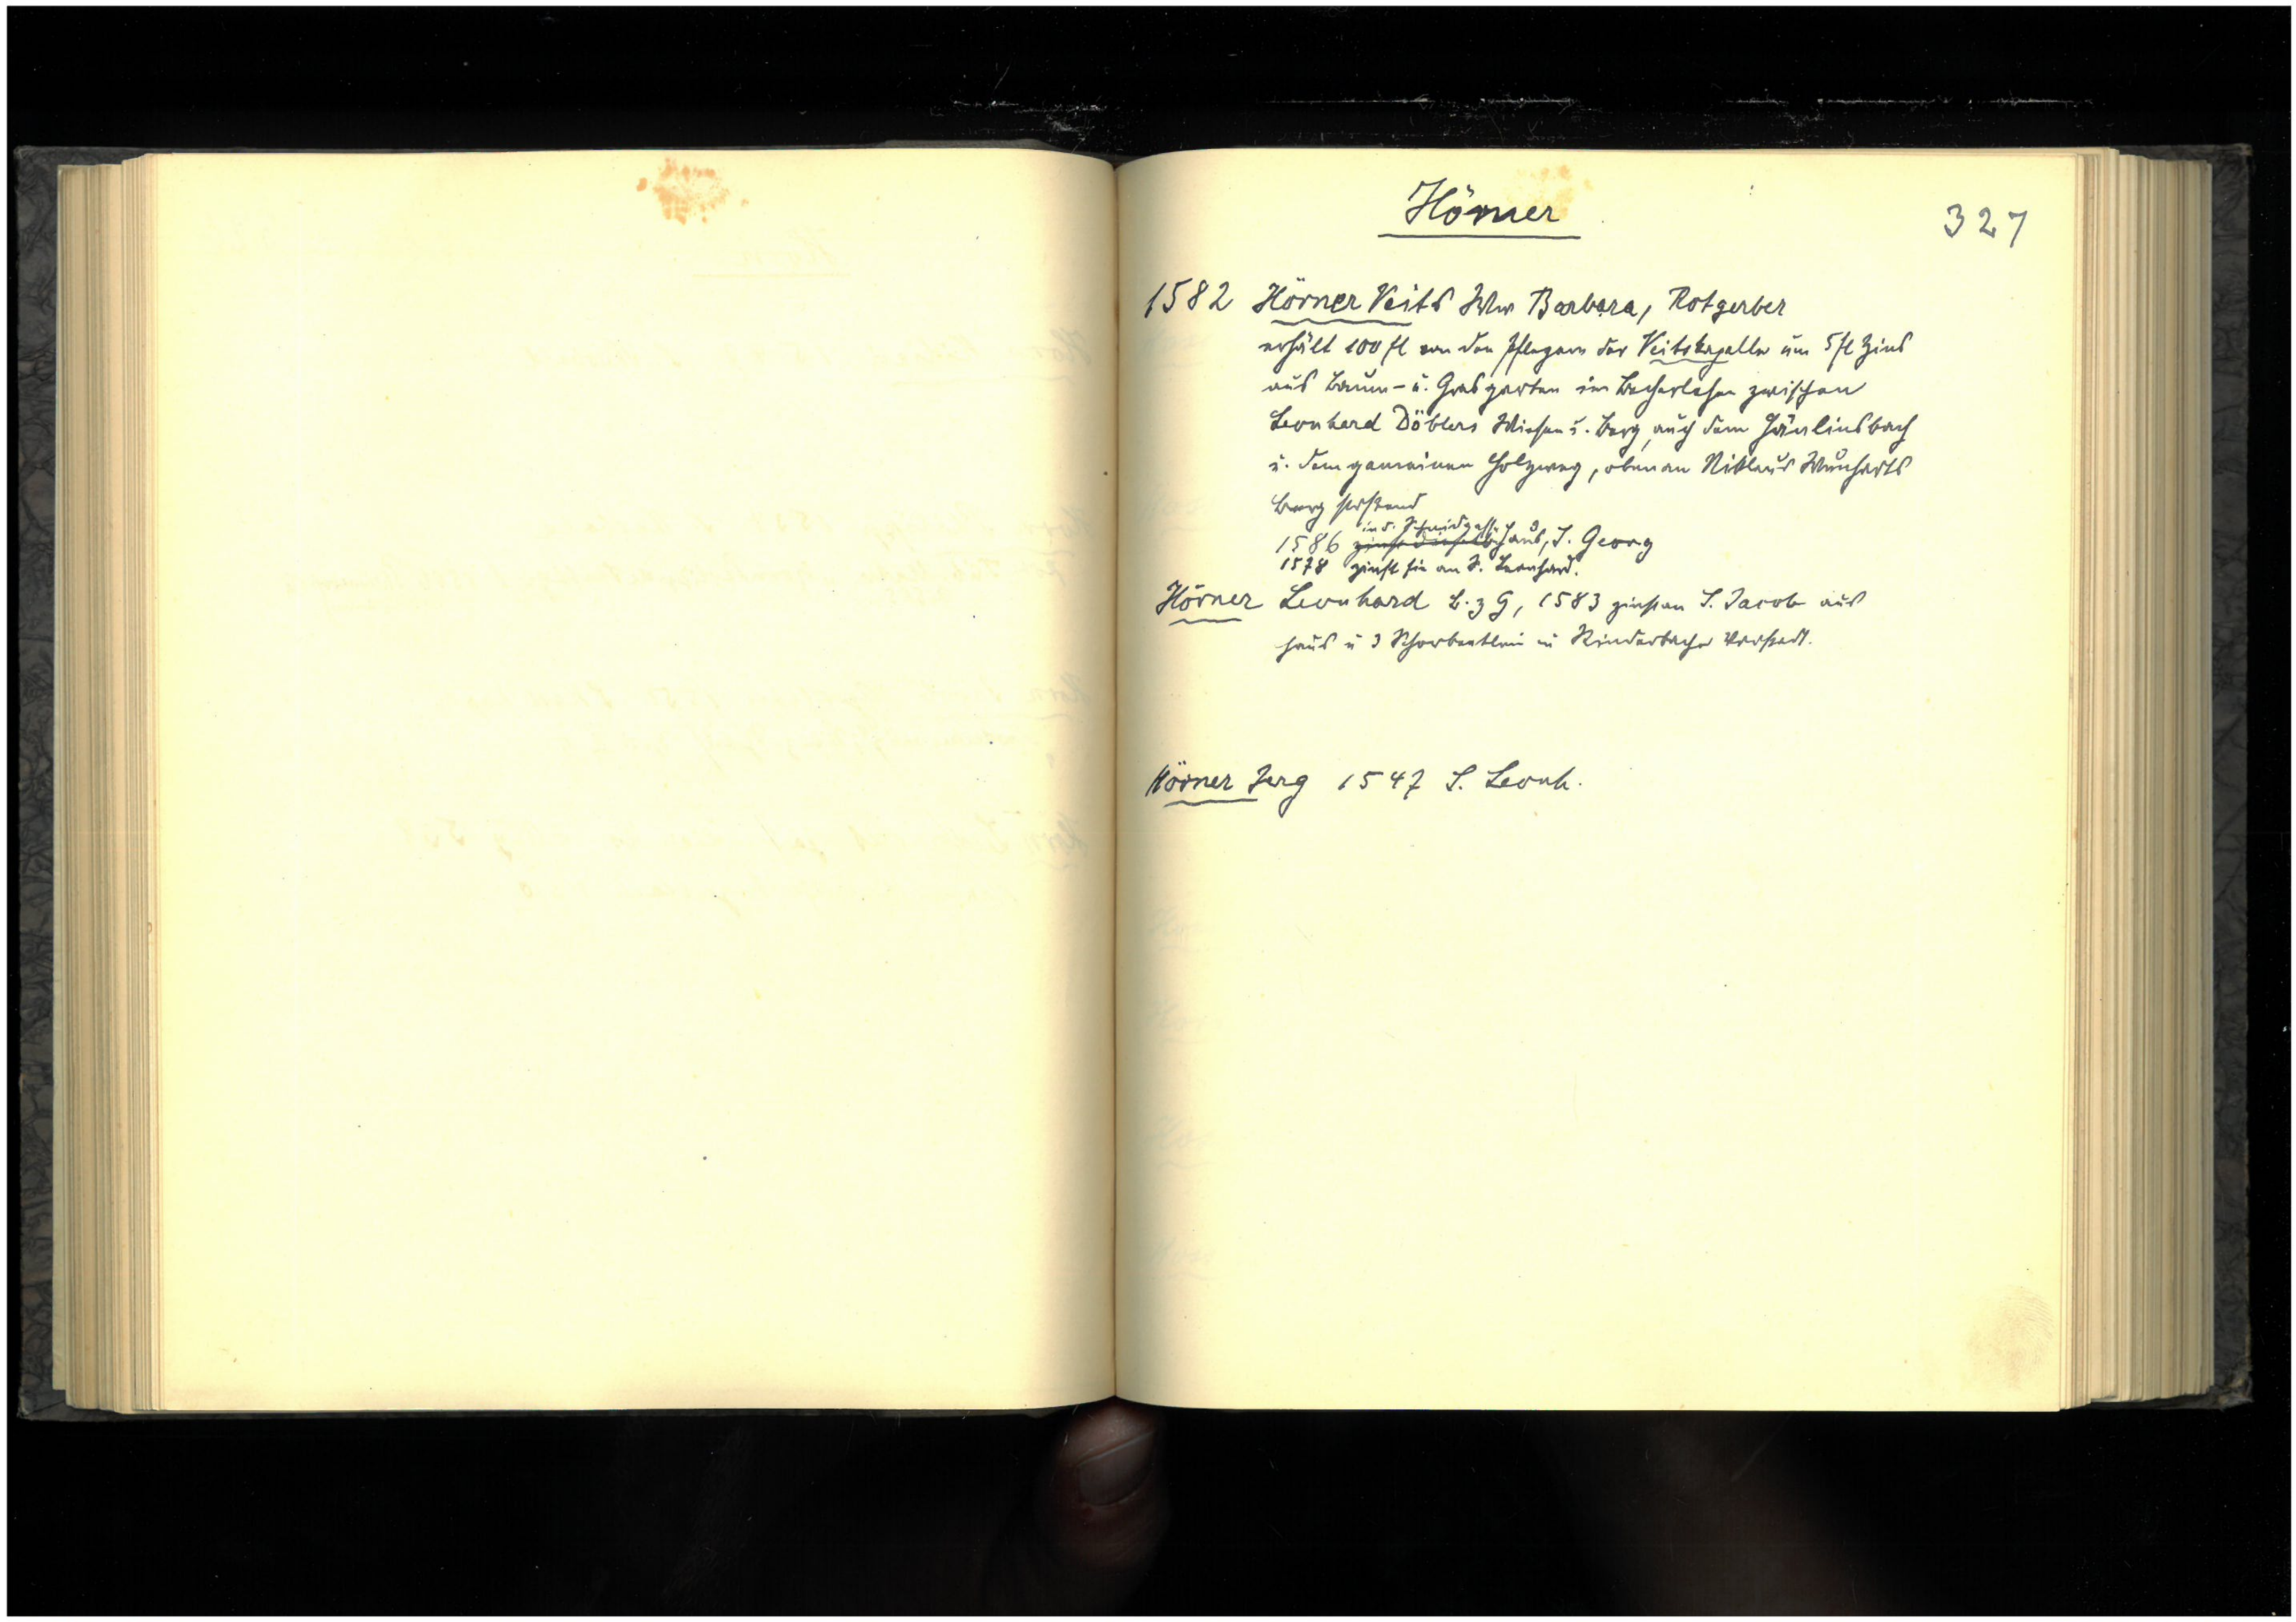 Hörner
327
1582 Hörner Veits Ww Barbara, Rotgerber
erhält 100 fl von den Pflegern der Veitskapelle um 5 fl Zins
aus Baum- u. Grasgarten im Becherlehen zwischen
Leonhard Döblers Wiesen u. Berg, auch dem
u. dem gemeinen Holzweg, oben an Niklaus Wunharts
Berg stoßend
in d. Schmidgasse
1586 Haus, S. Georg
1578 zinst sie an S. Leonhard.
Hörner Leonhard B. z G, 1583 zinst an S. Jacob aus
Haus u 3 in Rinderbacher Vorstadt.
Hörner Jerg 1547 S. Leonh.